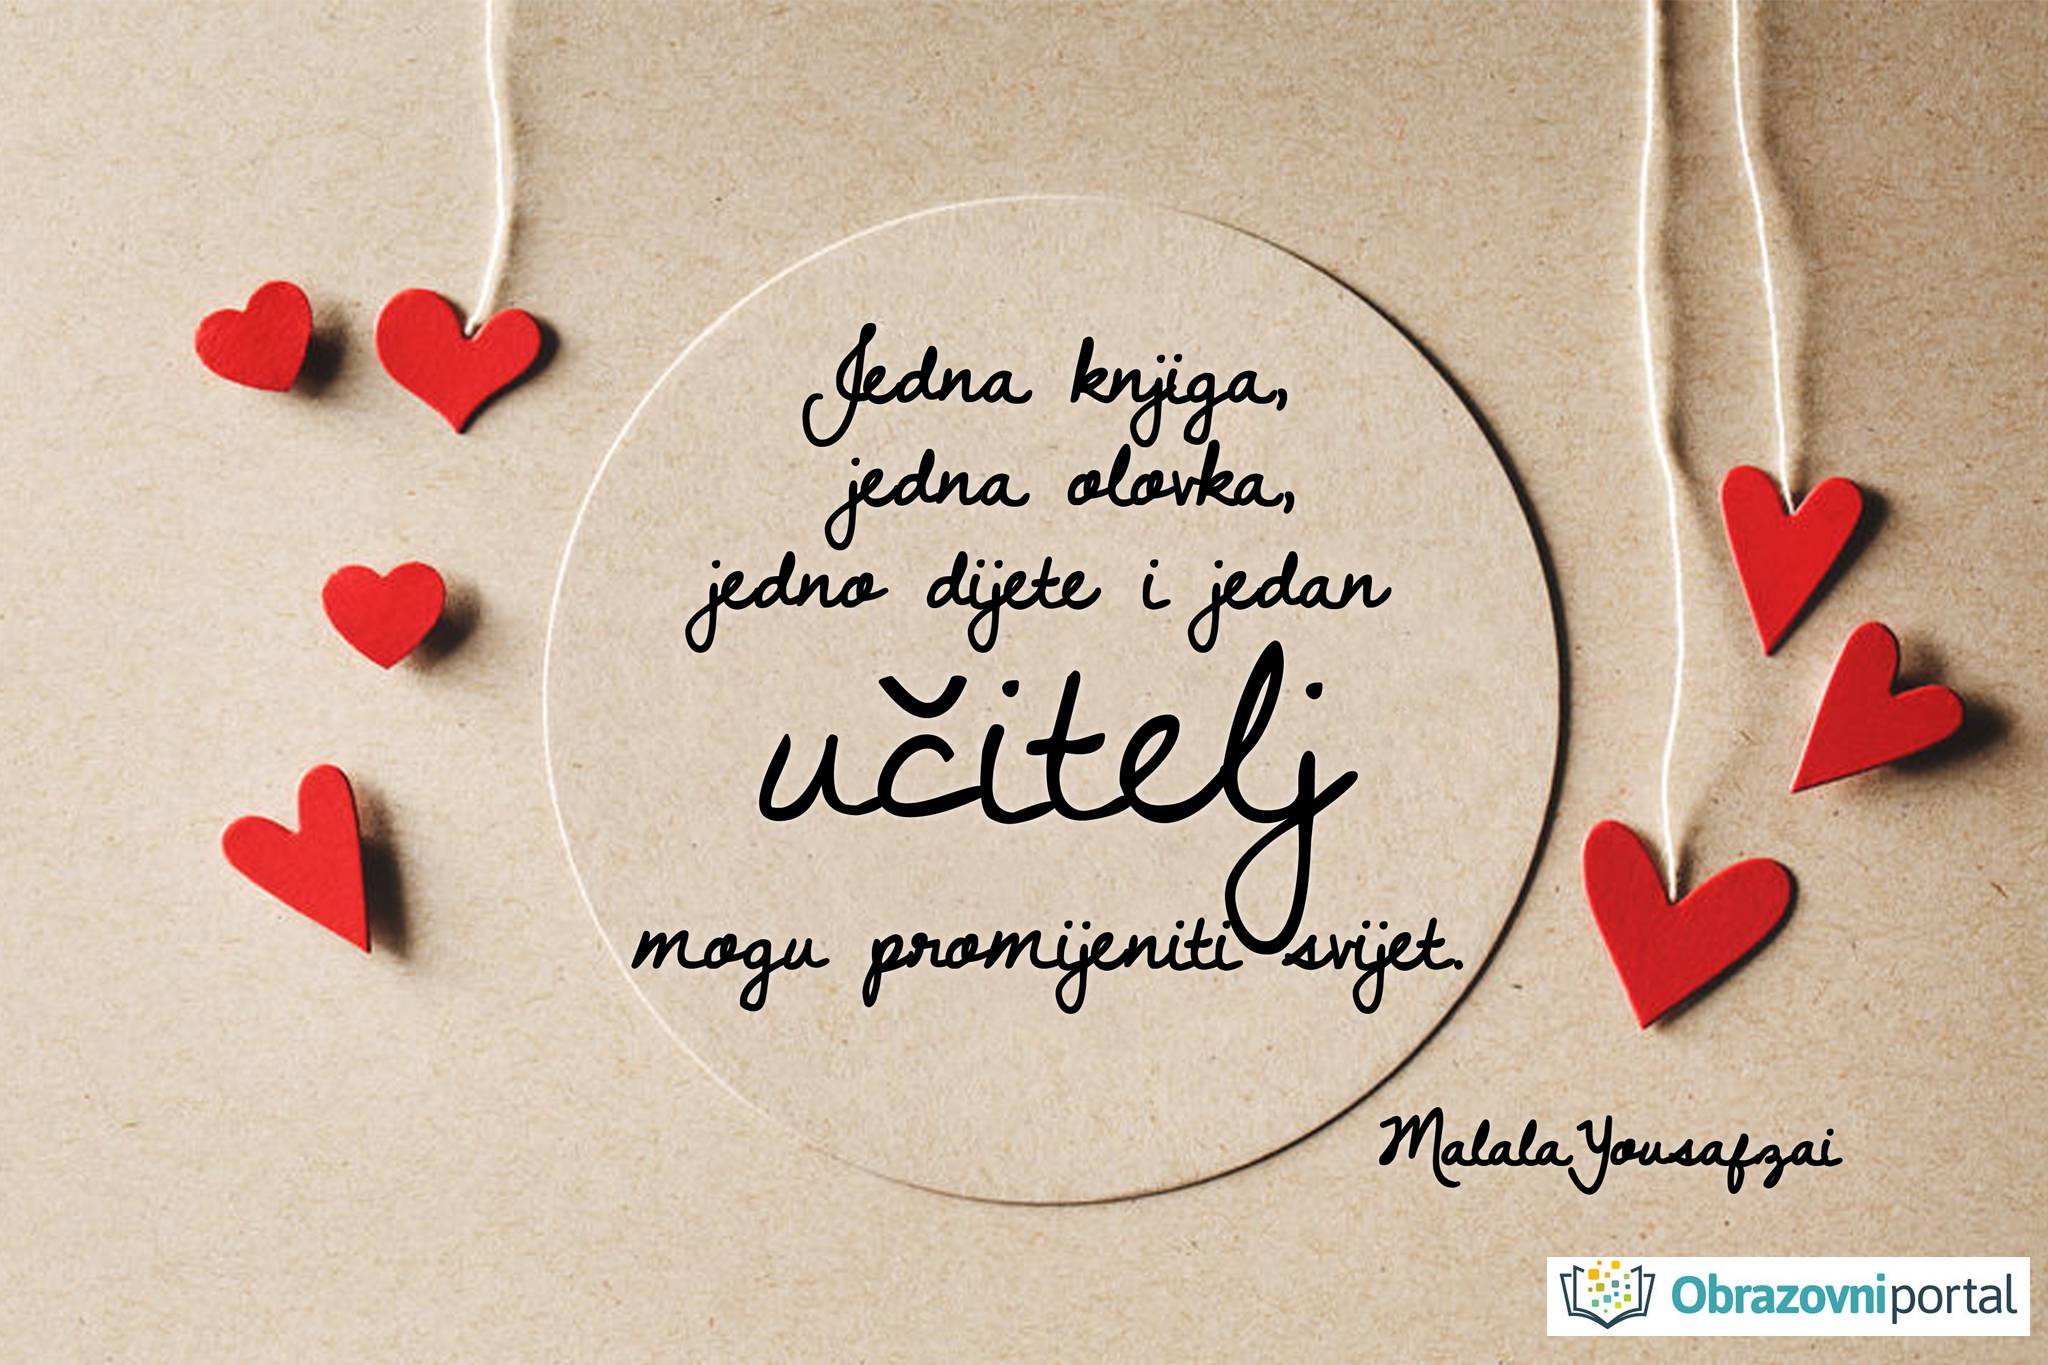 Jedna knjiga,
jedna olovka,
jedno dijete i jedan
učitelj
mogu promijeniti svijet.
Malala Yousafzai
Obrazovniportal